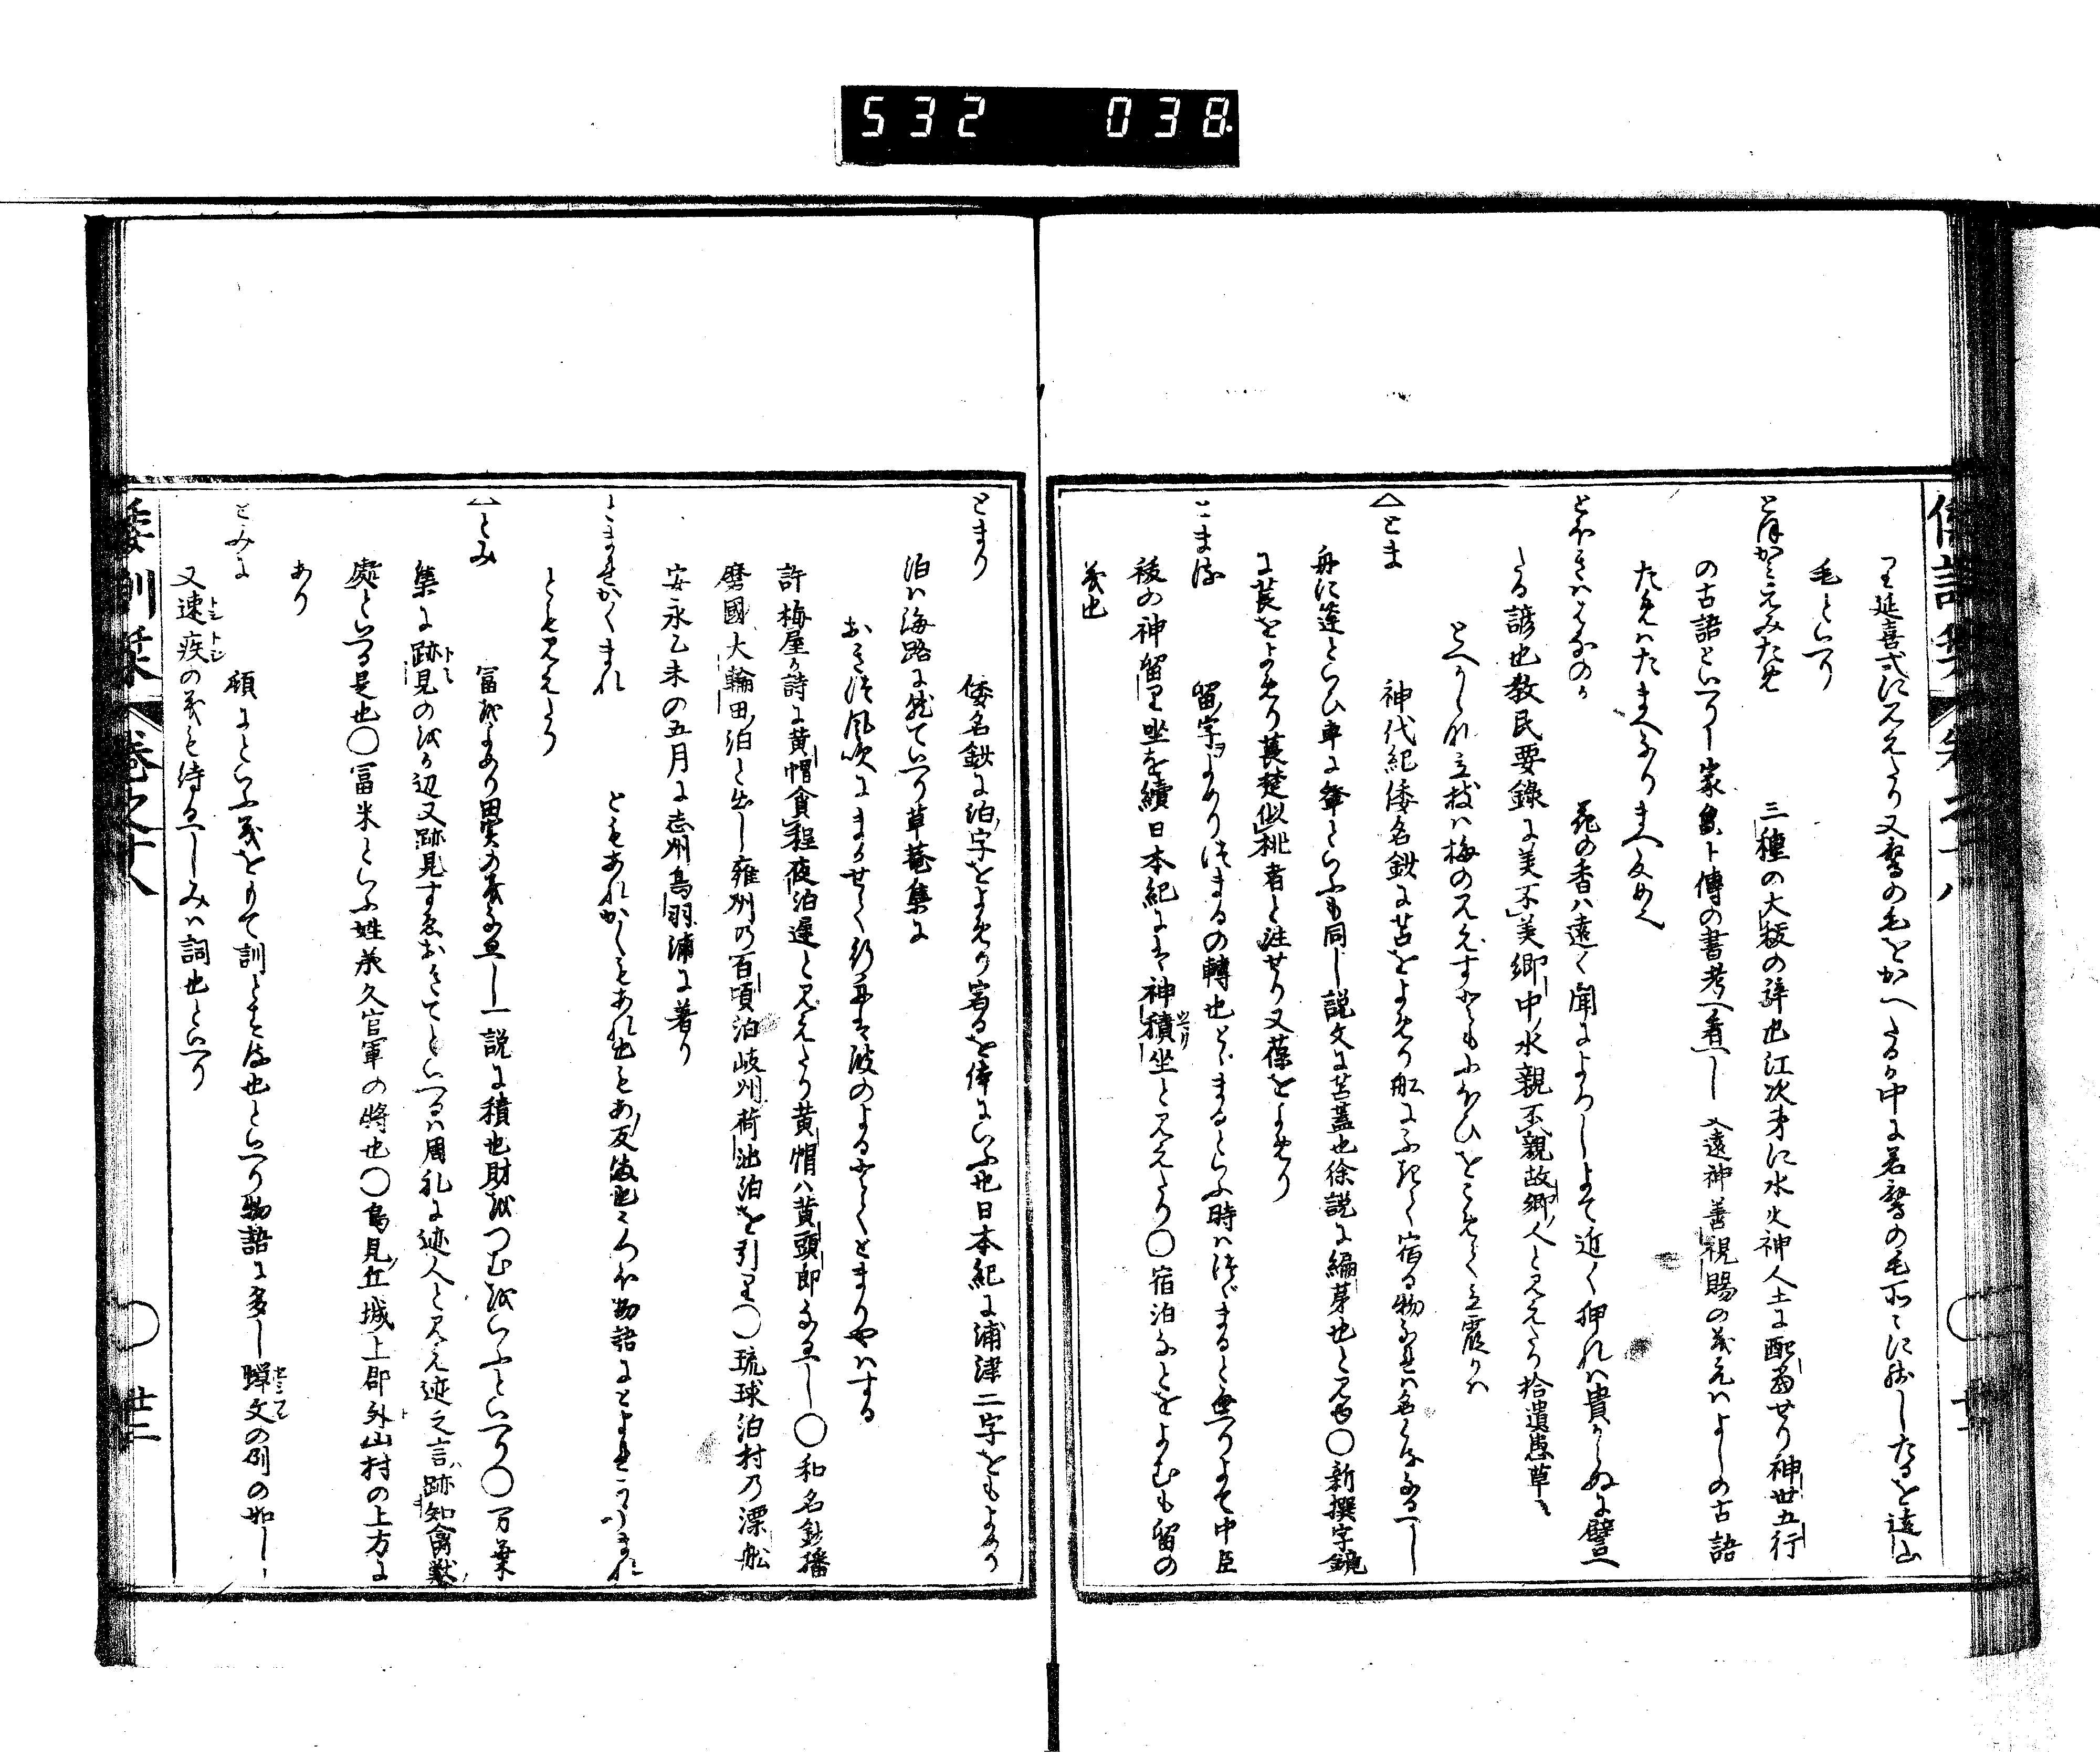 532 038
り延喜式に見えたり又鴛の毛をかへたるか中に若鴛の毛所々に残したるを遠山
毛といへり
とほかみえみため 三種の大祓の辞也江次才に水火神人土に配當せり神世五行
の古語といへり家亀卜傳の書考へ看へし 又遠神善視賜の義えはよしの古語
ためはたまへなりまへ反め也
とほきはなのか 花の香ハ遠く聞によろしよて近く狎れハ貴からぬに譬へ
たる諺也教民要錄に美不美郷中水親不親故郷人と見えたり拾遺愚草に
とへかしな立枝は梅の見えすともにほひをこめて立霞かは
△とま 神代紀倭名鈔に苫をよめり舩にふきて宿る物なれは名くるなるへし
舟に篷といひ車に篷といふも同し説文に苫蓋也徐説に編茅也と見ゆ〇新撰字鏡
に萇をよめり萇楚似桃者と注せり又葆をよめり
とまる 留字ヲよめりつまるの轉也とゝまるといふ時はつゞまると無つりよて中臣
祓の神留り坐を續日本紀には神積坐と見えたり〇宿泊なとをよむも留の
義也
とまり 倭名鈔に泊字をよめり宿るを体にいふ也日本紀に浦津二字をもよめり
泊は海路に就ていへり草菴集に
おきつ風吹にまかせて行舟は波のよるさへとまりやはする
許梅屋か詩に黄帽貪程夜泊遲と見えたり黄帽ハ黄頭郎なるへし〇和名鈔播
磨國大輪田泊と出し雍州乃百頃泊岐州荷池泊を引り〇琉球泊村乃漂舩
安永乙未の五月に志州鳥羽浦に着り
とまれかくまれ ともあれかくもあれ也もあ反ま也うつほ物語にとまれかうまれ
とも見えたり
△とみ 富をよめり田實の義なるへし一説に積也財をつむをいふといへり〇万葉
集に跡見のをか辺又跡見すゑおきてといへるは周礼に迹人と見え迹之言跡知禽獸
處といへる是也〇冨米といふ姓承久官軍の將也〇鳥見丘城上郡外山村の上方に
あり
とみに 頓にといふ義をもて訓とする也といへり物語に多し蟬文の例の如し
又速疾の義も侍るへしみは詞也といへり
倭訓栞 巻之十八 廿二